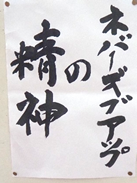 ネバーギブアップ
の
精神